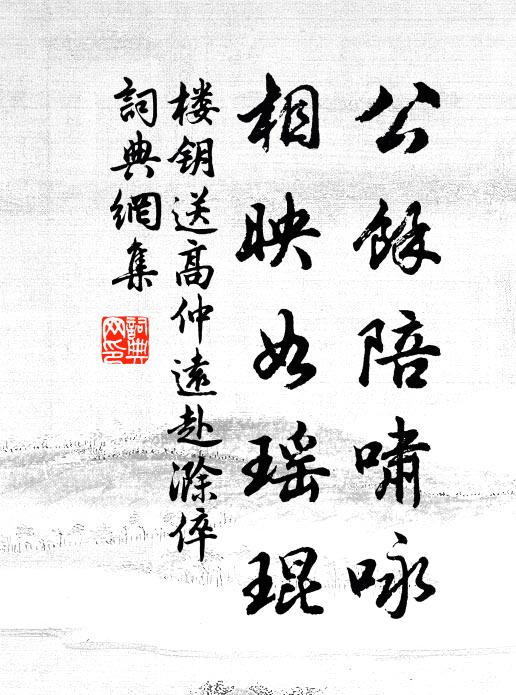 公餘陪啸咏
相映如瑶琨
楼钥送高仲遠赴滁倅
詞典網集
詞典网印